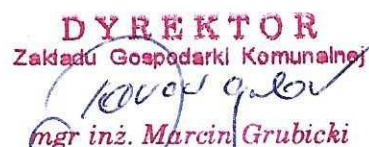 DYREKTOR
Zakładu Gospodarki Komunalnej
mgr inż. Marcin Grubicki